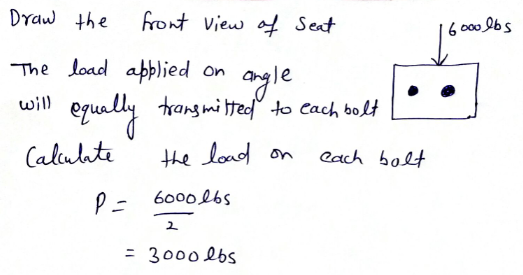 Draw the front view of Seat
6000lbs
The load applied on angle
will equally transmitted to each bolt
Calculate the load on each bolt
P = 6000lbs
2
= 3000lbs